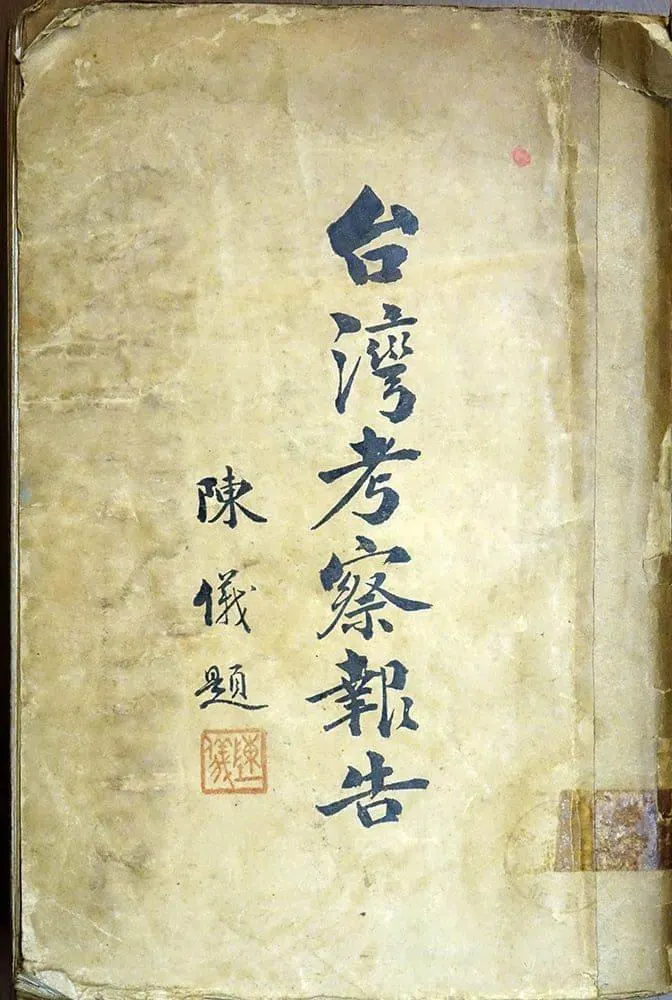 台灣考察報告
陳儀題
陳儀